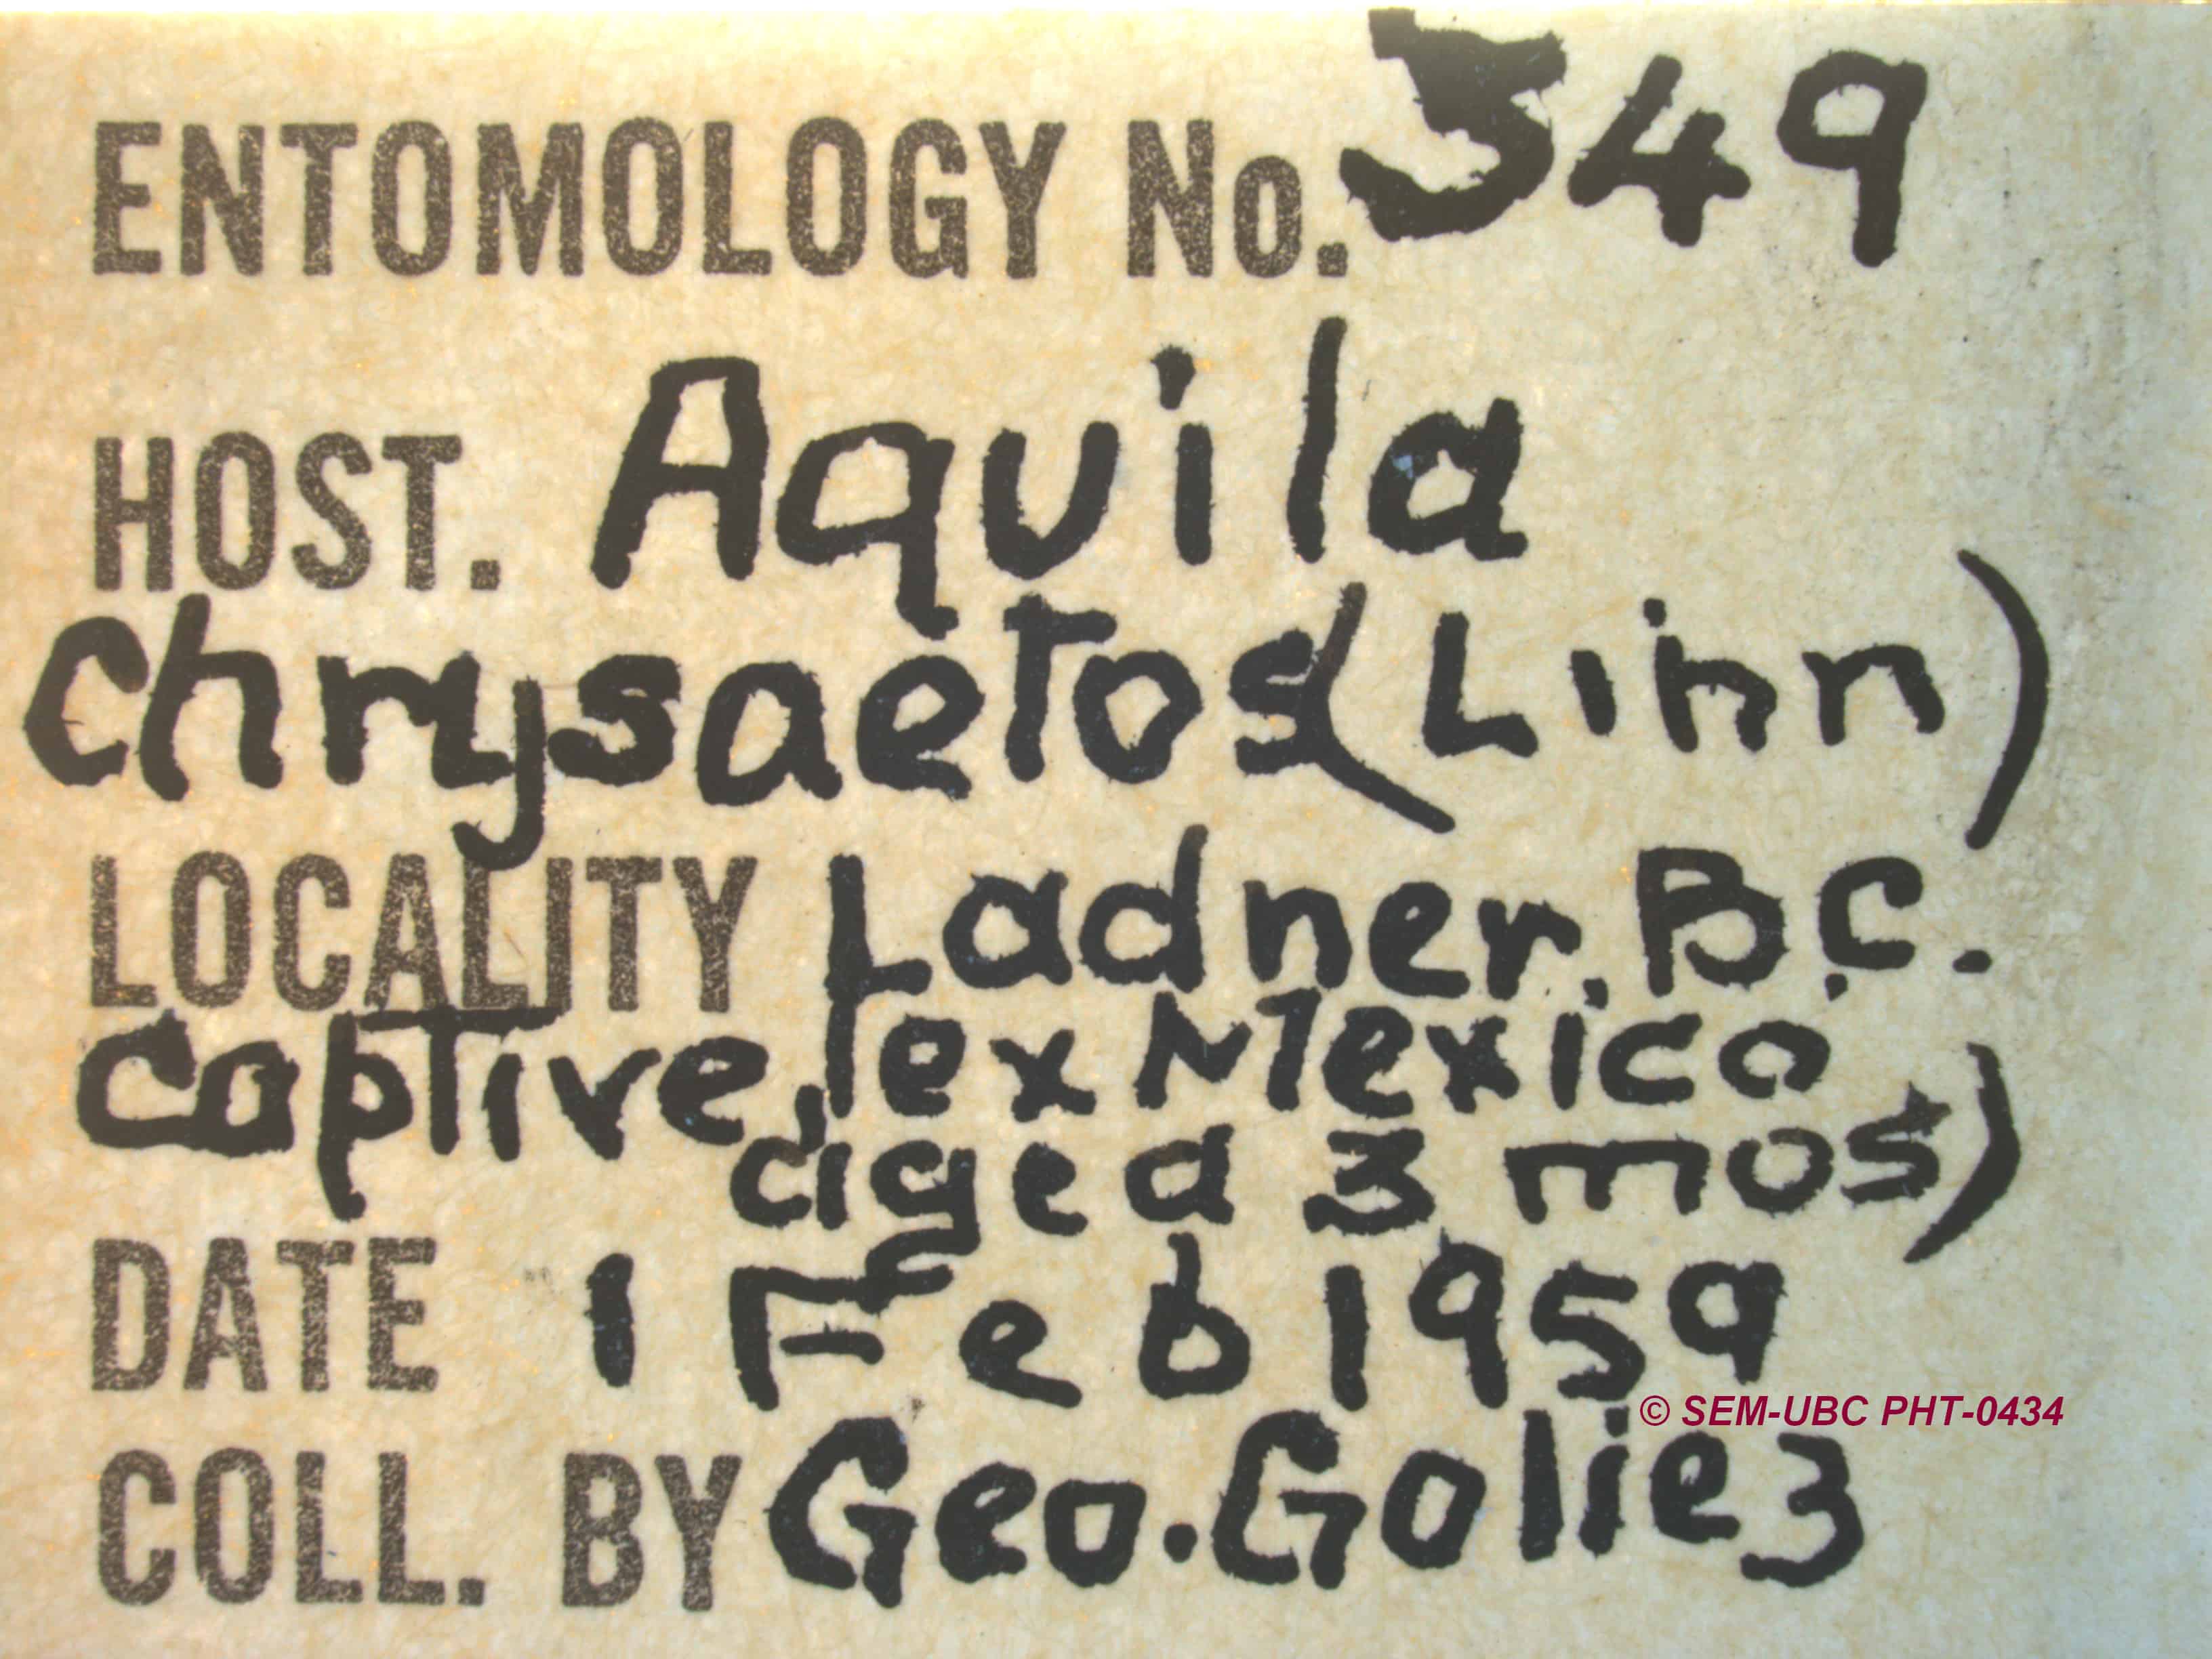 ENTOMOLOGY No. 349
HOST. Aquila
Chrysaetos (Linn)
LOCALITY Ladner, B.C.
Captive, (ex Mexico
aged 3 mos)
DATE 1 Feb 1959
© SEM-UBC PHT-0434
COLL. BY Geo. Goliez